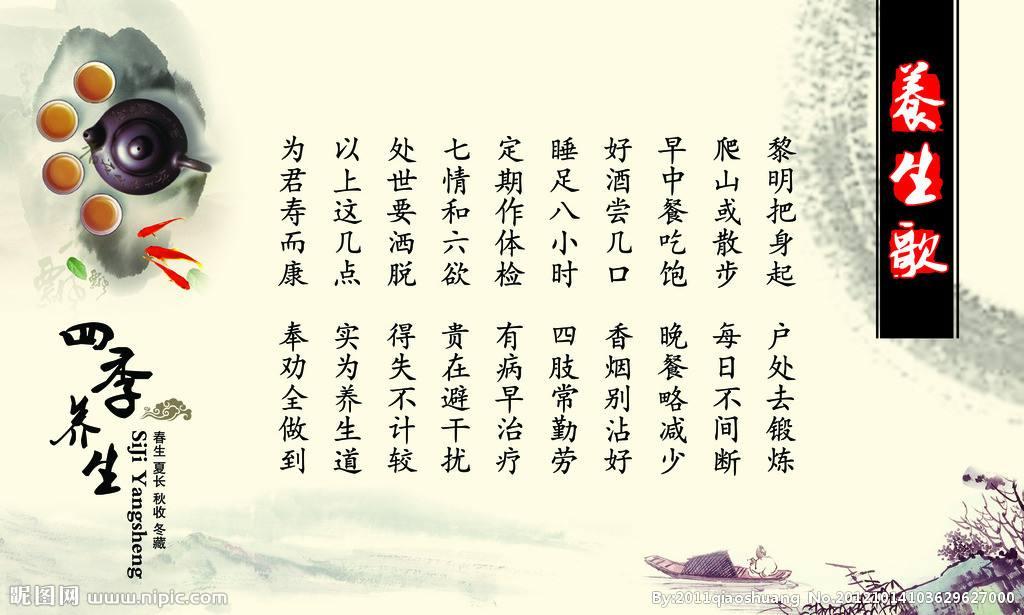 养生歌
黎明把身起
户处去锻炼
爬山或散步
每日不间断
早中餐吃饱
晚餐略减少
好酒尝几口
香烟别沾好
睡足八小时
四肢常勤劳
定期作体检
有病早治疗
七情和六欲
贵在避干扰
处世要洒脱
得失不计较
以上这几点
实为养生道
为君寿而康
奉劝全做到
四季养生
SiJi Yangsheng
春生 夏长 秋收 冬藏
昵图网 www.nipic.com
By:2011qiaoshuang No.20121014103629627000